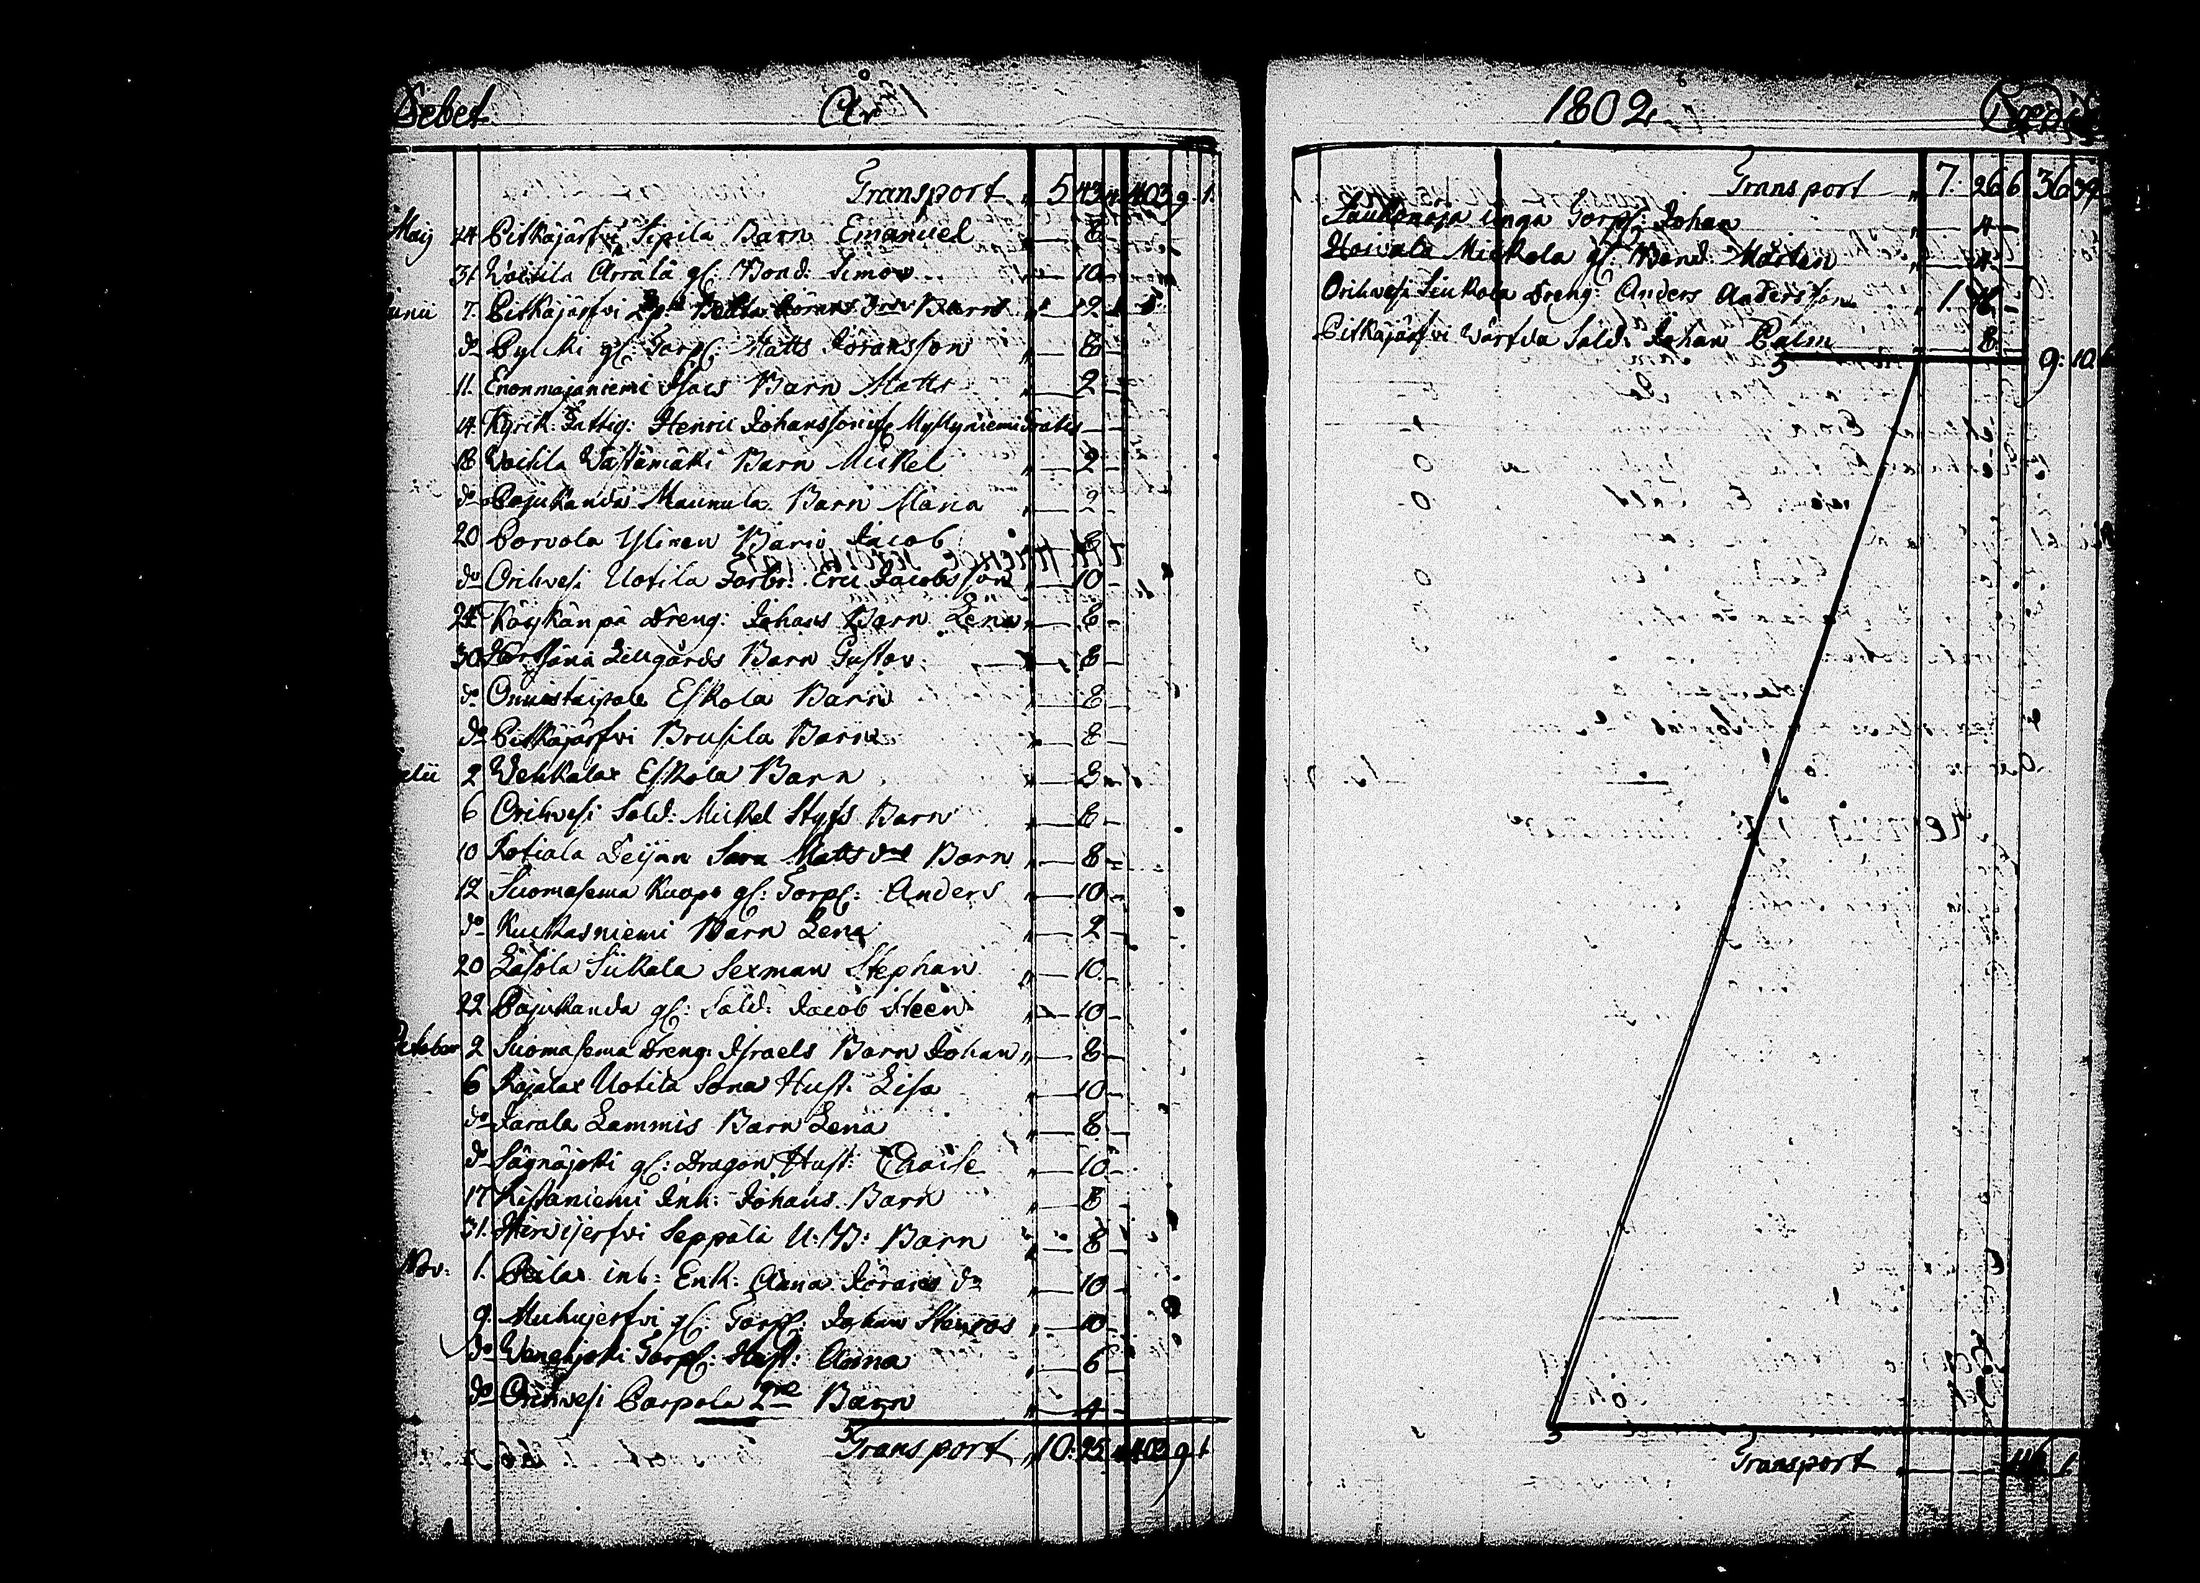 Debet År
Transport 5 43 4 403 9 1
Maij 24 Pitkäjärfvi Sipila Barn Emanuel 8
31 Woitila Arrälä gl: Bond: Simon 10
Junii 7. Pitkäjärfvi Barn 12
do Pylcki gl: Torp: Matts Göransson 8
11. Enonmajaniemi Isacs Barn Matts 2
14. Kyrk: Fattig: Henric Johansson if Myllyniemi Gratis
18 Woitila Wästämäki Barn Mickel 2
do Pajukanda Maunula Barn Maria 2
20 Porvola Ylinen Barn Jacob 8
do Orihvesi Uotila Torbr: Eric Jacobsson 10
24 Käykänpä Dreng: Johans Barn Lena 8
30 Lillgårds Barn Gustav 8
do Onnistaipale Eskola Barn 8
do Pitkäjärfvi Brusila Barn 8
Julii 2 Wehkalax Eskola Barn 8
6 Orihvesi Sold: Mickel Styfs Barn 8
10 Kotiala Deijan Sara Matts dotr Barn 8
12 Suomasema Kuapo gl: Torp: Anders 10
do Kuckasniemi Barn Lena 2
20 Läsola Siikala Sexman Stephan 10
22 Pajukanda gl: Sold: Jacob Steen 10
October 2 Suomasema Dreng: Israels Barn Johan 8
6 Rajalax Uotila Sona Hust: Lisa 10
do Jarala Lammis Barn Lena 8
do Sägnäjoki gl: Dragon Hust: 10
17 Ristaniemi Inh: Johans Barn 8
31. Hirvijerfvi Seppälä U: B: Barn 8
Nov: 1. Peilax inh: Enk: Anna Görans dr 10
9. Muhujerfvi gl: Torp: Johan Stenroos 10
do Torp: Hust: Anna 6
do Orihvesi Parpola 2ne Barn 4
Transport 10 25 403 9 1
1802 Credit
Transport 7 26 6 36 39
Laukonoja unga Torp: Johan 4
Hoivala Mickola gl: Bond: Mårten 4
Orihvesi Siukola Dreng: Anders Andersson 1
Pitkäjärfvi Wärfva Sold: Johan Palm 8
9 10
Transport 46 1